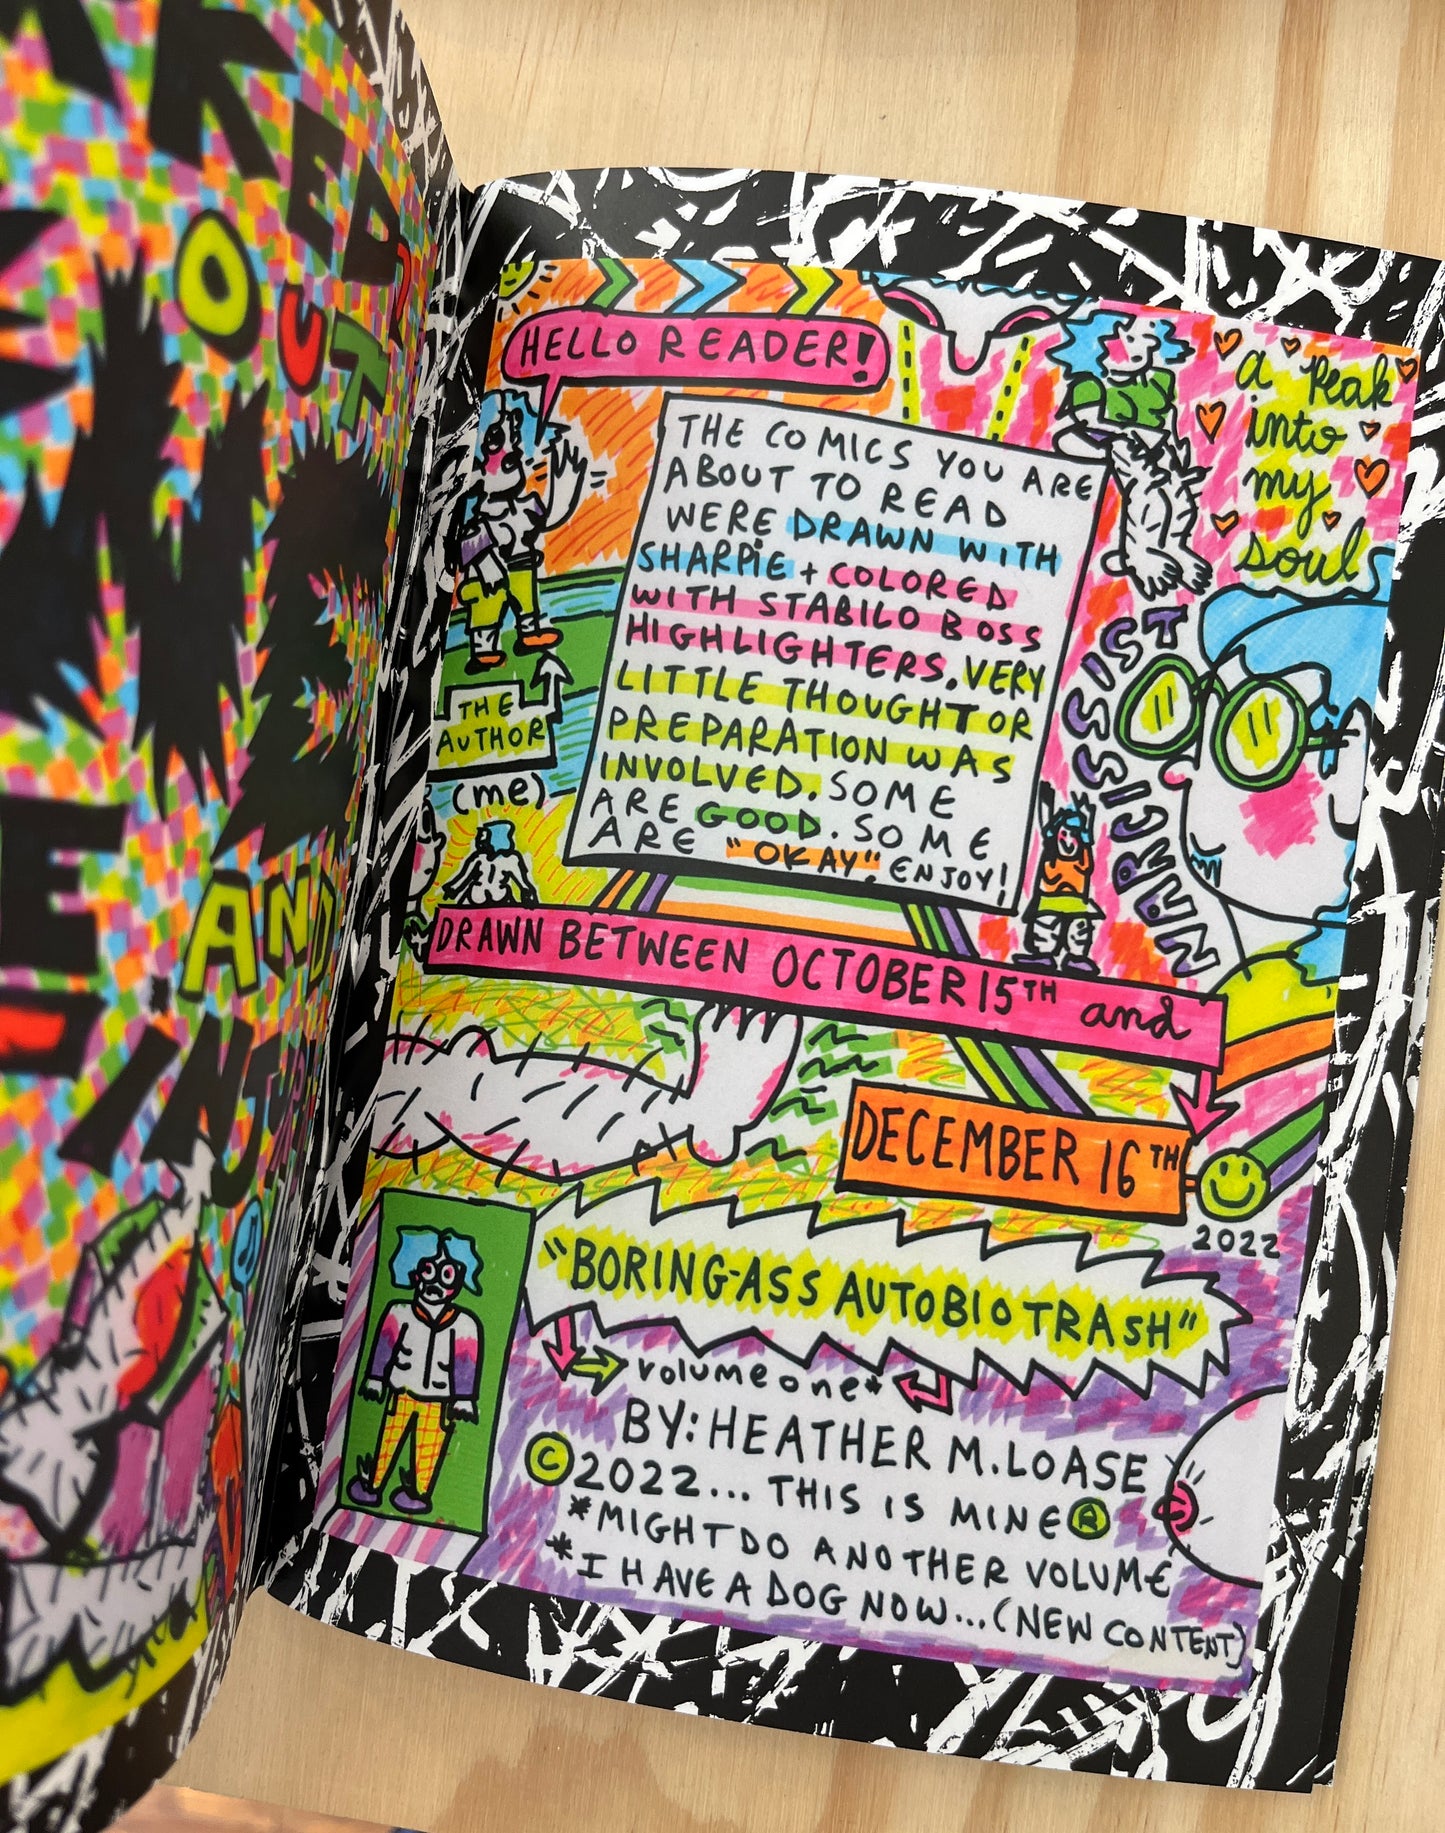 OUT
AND
HELLO READER!
THE COMICS YOU ARE
ABOUT TO READ
WERE DRAWN WITH
SHARPIE + COLORED
WITH STABILO BOSS
HIGHLIGHTERS. VERY
LITTLE THOUGHT OR
PREPARATION WAS
INVOLVED. SOME
ARE GOOD. SOME
ARE "OKAY". ENJOY!
a peak
into
my
soul
THE
AUTHOR
(me)
NARCISSISSIST
DRAWN BETWEEN OCTOBER 15TH and
DECEMBER 16TH
2022
"BORING-ASS AUTOBIO TRASH"
volume one*
BY: HEATHER M. LOASE
© 2022... THIS IS MINE ®
*MIGHT DO ANOTHER VOLUME
*I HAVE A DOG NOW...(NEW CONTENT)